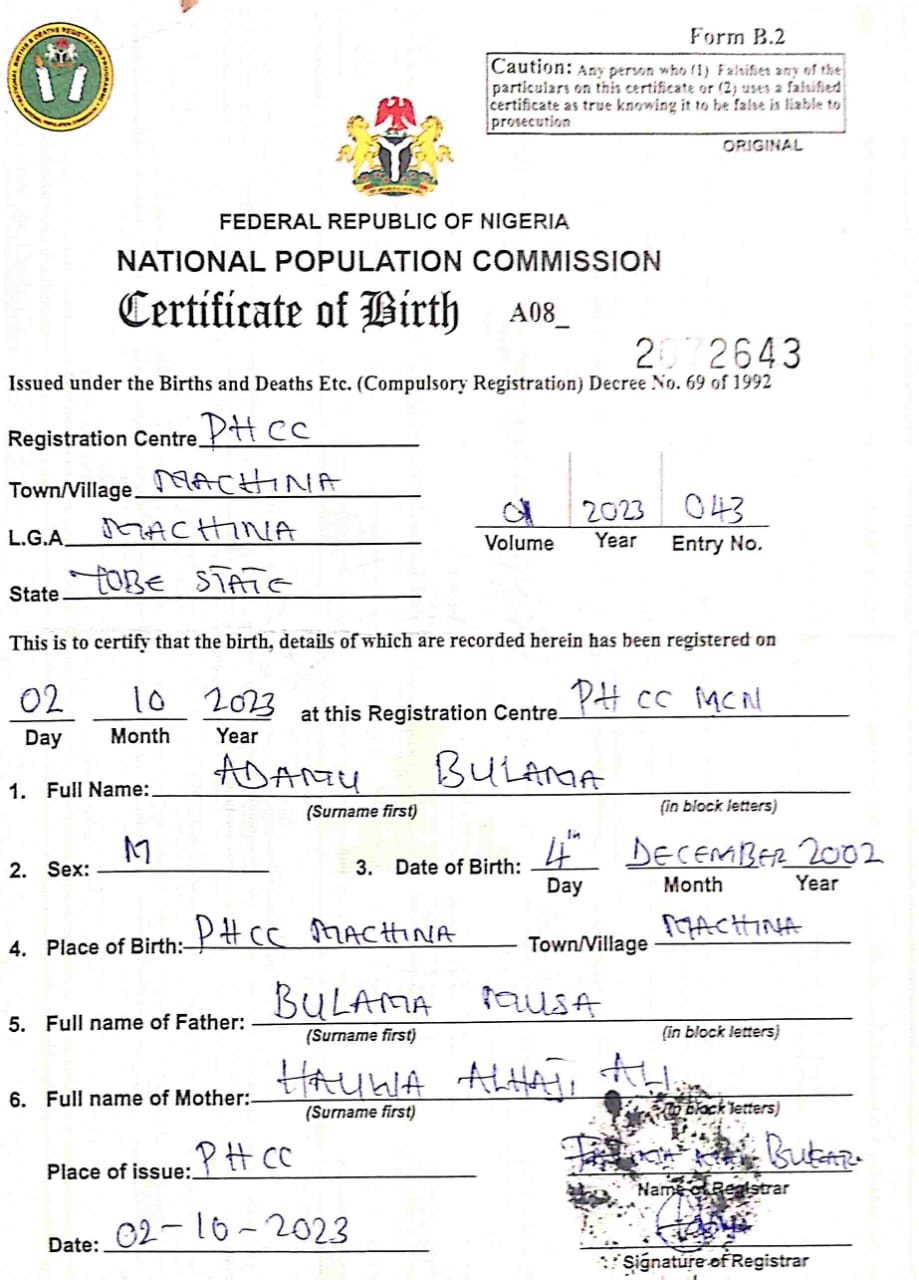 Form B.2
Caution: Any person who (1) Falsifies any of the
particulars on this certificate or (2) uses a falsified
certificate as true knowing it to be false is liable to
prosecution
ORIGINAL
FEDERAL REPUBLIC OF NIGERIA
NATIONAL POPULATION COMMISSION
Certificate of Birth A08_
2072643
Issued under the Births and Deaths Etc. (Compulsory Registration) Decree No. 69 of 1992
Registration Centre PHCC
Town/Village MACHINA
L.G.A MACHINA
01 2023 043
Volume Year Entry No.
State YOBE STATE
This is to certify that the birth, details of which are recorded herein has been registered on
02 10 2023 at this Registration Centre PHCC MCN
Day Month Year
1. Full Name: ADAMU BULAMA
(Surname first) (in block letters)
2. Sex: M 3. Date of Birth: 4th DECEMBER 2002
Day Month Year
4. Place of Birth: PHCC MACHINA Town/Village MACHINA
5. Full name of Father: BULAMA MUSA
(Surname first) (in block letters)
6. Full name of Mother: HAUWA ALHAJI ALI
(Surname first) (in block letters)
Place of issue: PHCC
BUKAR
Name of Registrar
Date: 02-10-2023
Signature of Registrar